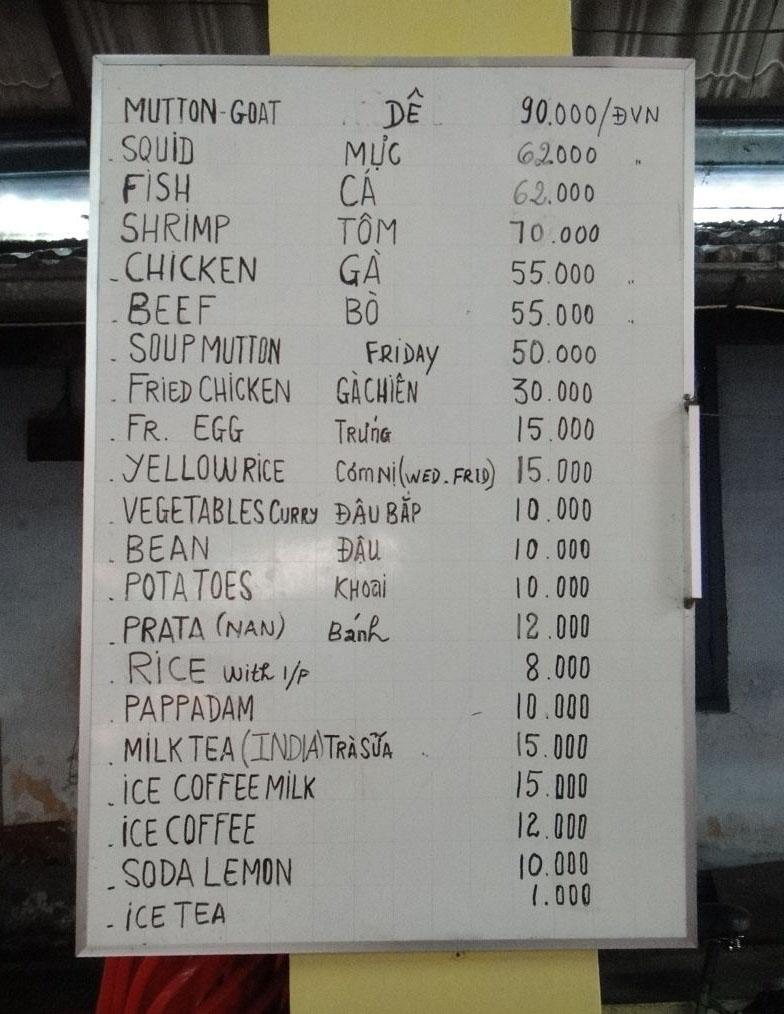 MUTTON-GOAT DÊ 90.000/ĐVN
. SQUID MỰC 62000 "
FISH CÁ 62.000
SHRIMP TÔM 70.000
- CHICKEN GÀ 55.000 "
. BEEF BÒ 55.000 "
. SOUP MUTTON FRIDAY 50.000
. FRIED CHICKEN GÀ CHIÊN 30.000
. FR. EGG TRứNG 15.000
. YELLOW RICE CơM Nị (WED. FRID) 15.000
. VEGETABLES CURRY ĐÂU BẮP 10.000
. BEAN ĐẬU 10.000
. POTATOES KHOai 10.000
. PRATA (NAN) Bánh 12.000
. RICE with 1/P 8.000
. PAPPADAM 10.000
. MILK TEA (INDIA) TRÀ SỮA 15.000
. ICE COFFEE MILK 15.000
. ICE COFFEE 12.000
- SODA LEMON 10.000
- ICE TEA 1.000